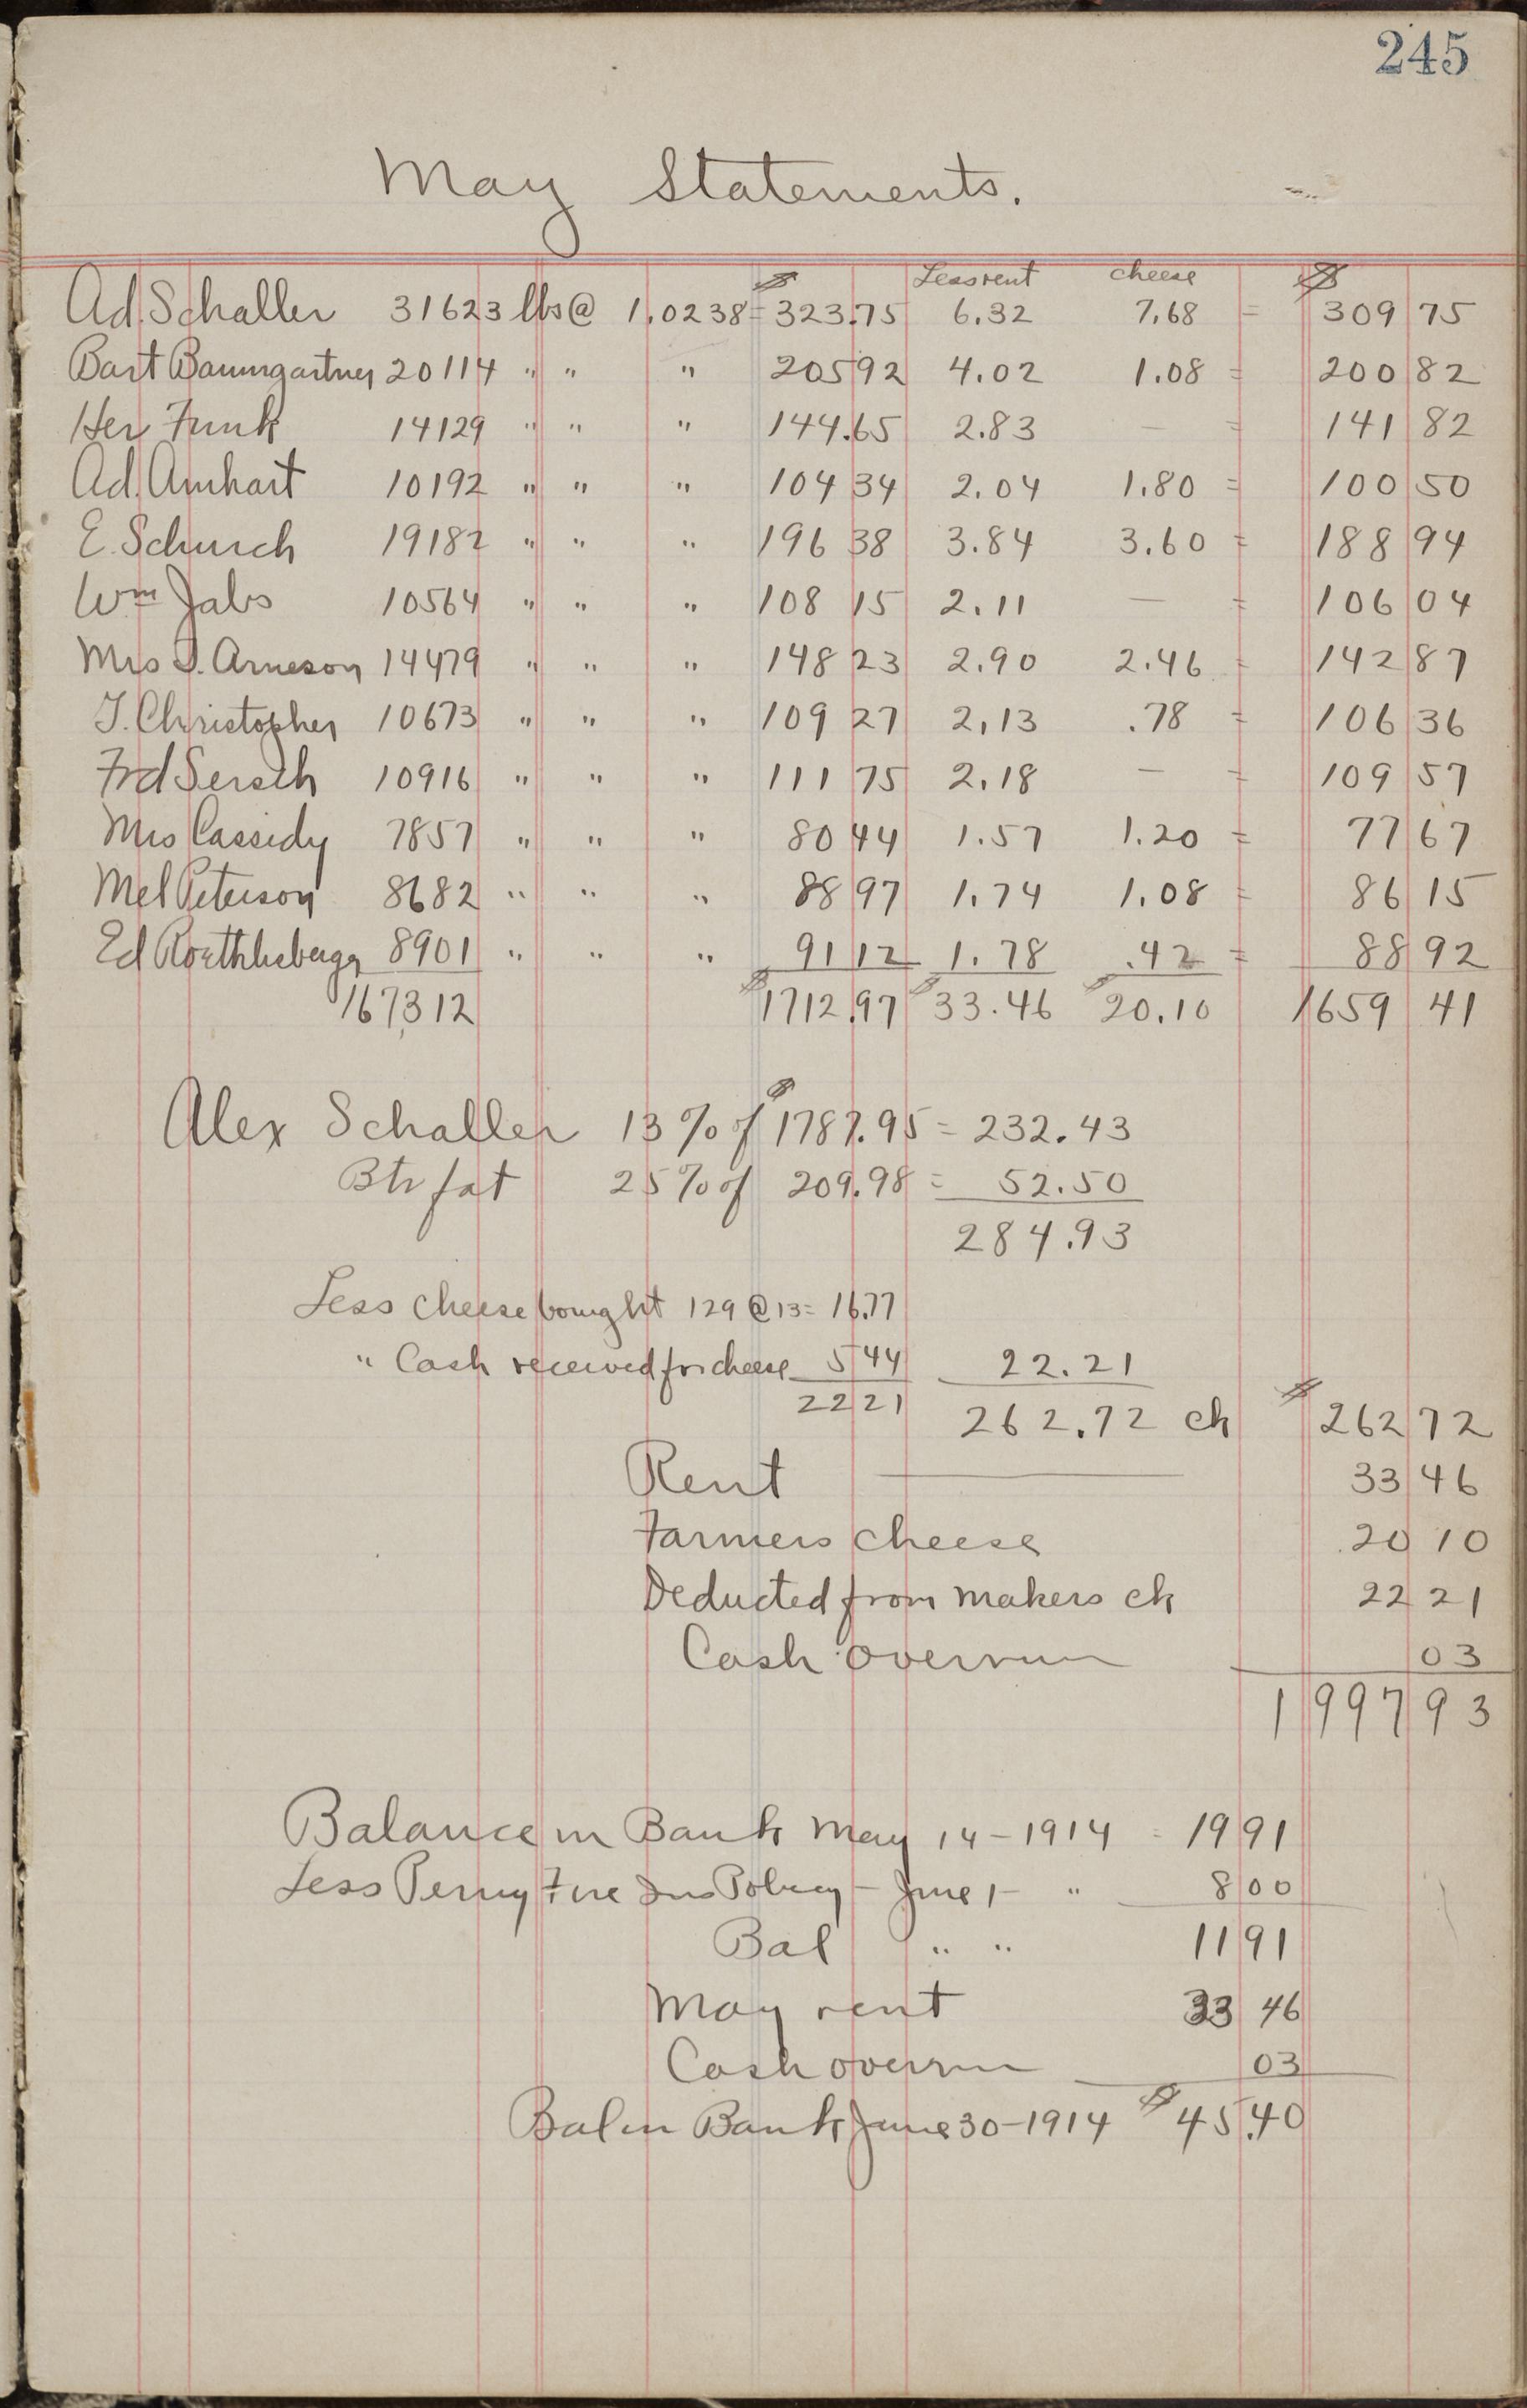 245
May Statements.
$ Less rent cheese $
Ad. Schaller 31623 lbs @ 1.0238 = 323.75 6.32 7.68 = 309 75
Bart Baumgartner 20114 " " " 205 92 4.02 1.08 = 200 82
Her Funk 14129 " " " 144.65 2.83 — = 141 82
Ad. Amhart 10192 " " " 104 34 2.04 1.80 = 100 50
E. Schurch 19182 " " " 196 38 3.84 3.60 = 188 94
Wm Jabs 10564 " " " 108 15 2.11 — = 106 04
Mrs J. Arneson 14479 " " " 148 23 2.90 2.46 = 142 87
T. Christopher 10673 " " " 109 27 2.13 .78 = 106 36
Frd Sersch 10916 " " " 111 75 2.18 — = 109 57
Mrs Cassidy 7857 " " " 80 44 1.57 1.20 = 77 67
Mel Peterson 8682 " " " 88 97 1.74 1.08 = 86 15
Ed Roethlisberger 8901 " " " 91 12 1.78 .42 = 88 92
167312 $1712.97 $33.46 $20.10 1659 41
Alex Schaller 13 % of $1787.95 = 232.43
Btr fat 25 % of 209.98 = 52.50
284.93
Less cheese bought 129 @ 13 = 16.77
" Cash received for cheese 5 44 22.21
22 21 262.72 ch $262 72
Rent 33 46
Farmers cheese 20 10
Deducted from makers ch 22 21
Cash overrun 03
1997 93
Balance in Bank May 14 – 1914 = 19 91
Less Perry Fire Ins Policy – June 1 – " 8 00
Bal " " 11 91
May rent 33 46
Cash overrun 03
Bal in Bank June 30 – 1914 $45.40